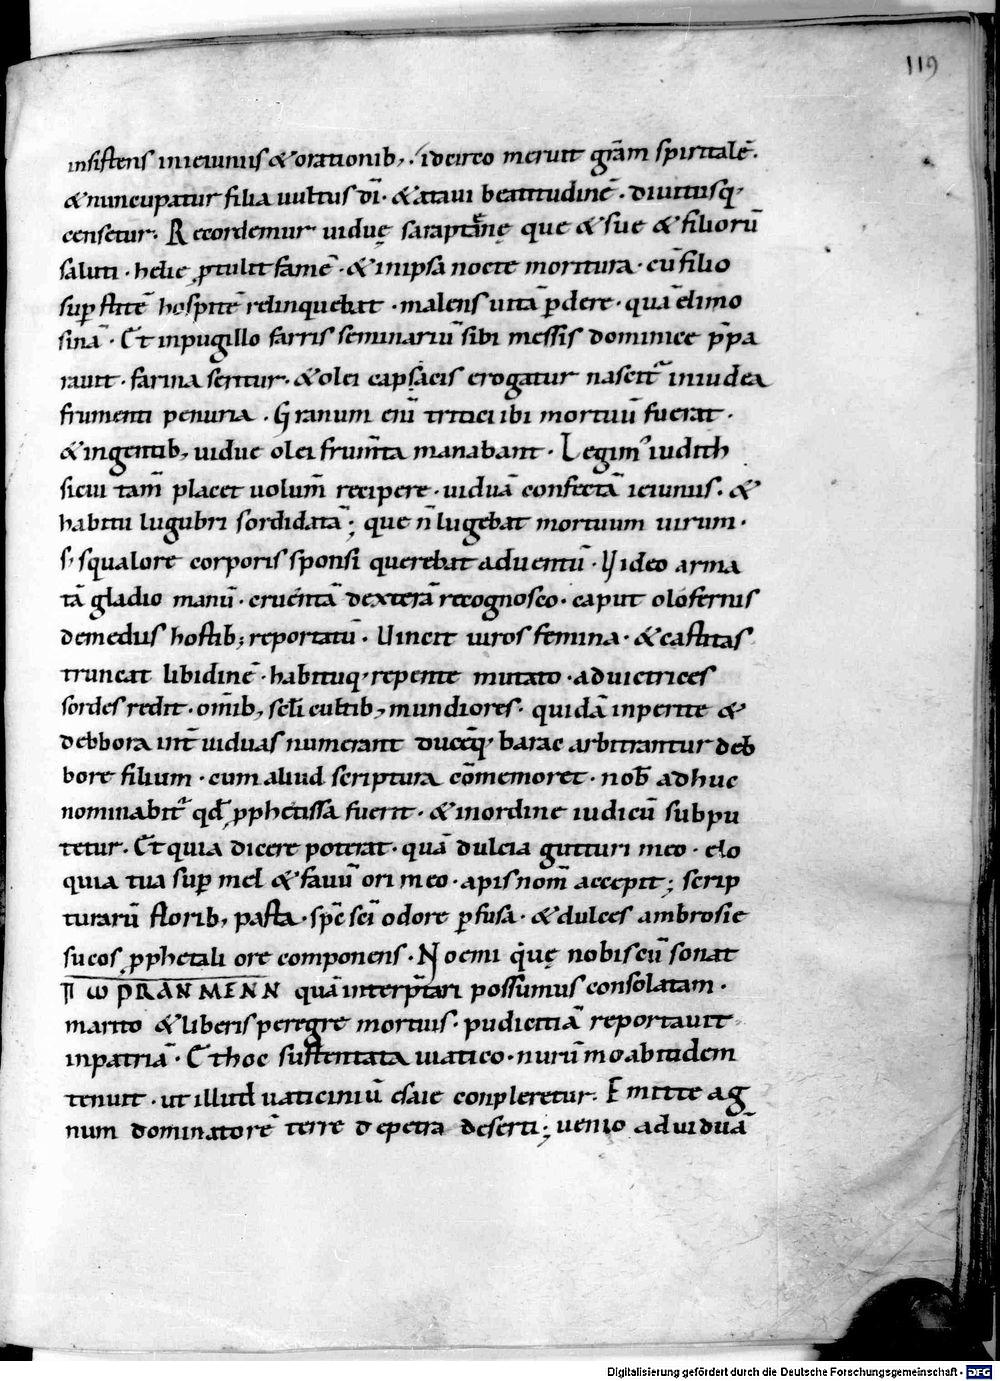 119
insistens inieiuniis & orationib; . idcirco meruit grām spiritalē.
& nuncupatur filia uultus dī. & ataui beatitudinē. diuitiisq;
censetur. Recordemur uiduę saraptēnę que & sue & filiorū
saluti. helie ptulit famē. & inipsa nocte moritura. cū filio
supstitē hospitē relinquebat. malens uitā pdere. quā elimo
sinā. Et inpugillo farris seminariū sibi messis dominice p̄pa
rauit. farina seritur. & olei capsacis erogatur nascit̄ iniudea
frumenti penuria. Granum enī tritici ibi mortuū fuerat.
& ingentib; uidue olei frum̄ta manabant. Legim' iudith
sicui tam̄ placet uolum̄ recipere. uiduā confectā ieiuniis. &
habitu lugubri sordidatā; que n̄ lugebat mortuum uirum.
s; squalore corporis sponsi querebat aduentū. Uideo arma
tā gladio manū. cruentā dexterā recognosco. caput olofernis
demediis hostib; reportatū. Uincit uiros femina. & castitas
truncat libidinē. habituq; repente mutato. aduictrices
sordes redit. om̄ib; scl̄i cultib; mundiores. quidā inperite &
debbora int̄ uiduas numerant ducēq; barac arbitrantur deb
bore filium. cum aliud scriptura cōmemoret. nob̄ adhuc
nominabit̄ qd̄ pphetissa fuerit. & inordine iudicū subpu
tetur. Et quia dicere poterat. quā dulcia gutturi meo. elo
quia tua sup mel & fauū ori meo. apis nom̄ accepit; scrip
turarū florib; pasta. sp̄c sc̄i odore pfusa. & dulces ambrosie
sucos pphetali ore componens. Noemi quę nobiscū sonat
Π ω PRANMENN quā interp̄tari possumus consolatam.
marito & liberis peregre mortuis. pudicitiā reportauit
inpatriā. Et hoc sustentata uiatico. nurū moabitidem
tenuit. ut illud uaticiniū esaie conpleretur. Emitte ag
num dominatorē terre depetra deserti; uenio aduiduā
Digitalisierung gefördert durch die Deutsche Forschungsgemeinschaft - DFG